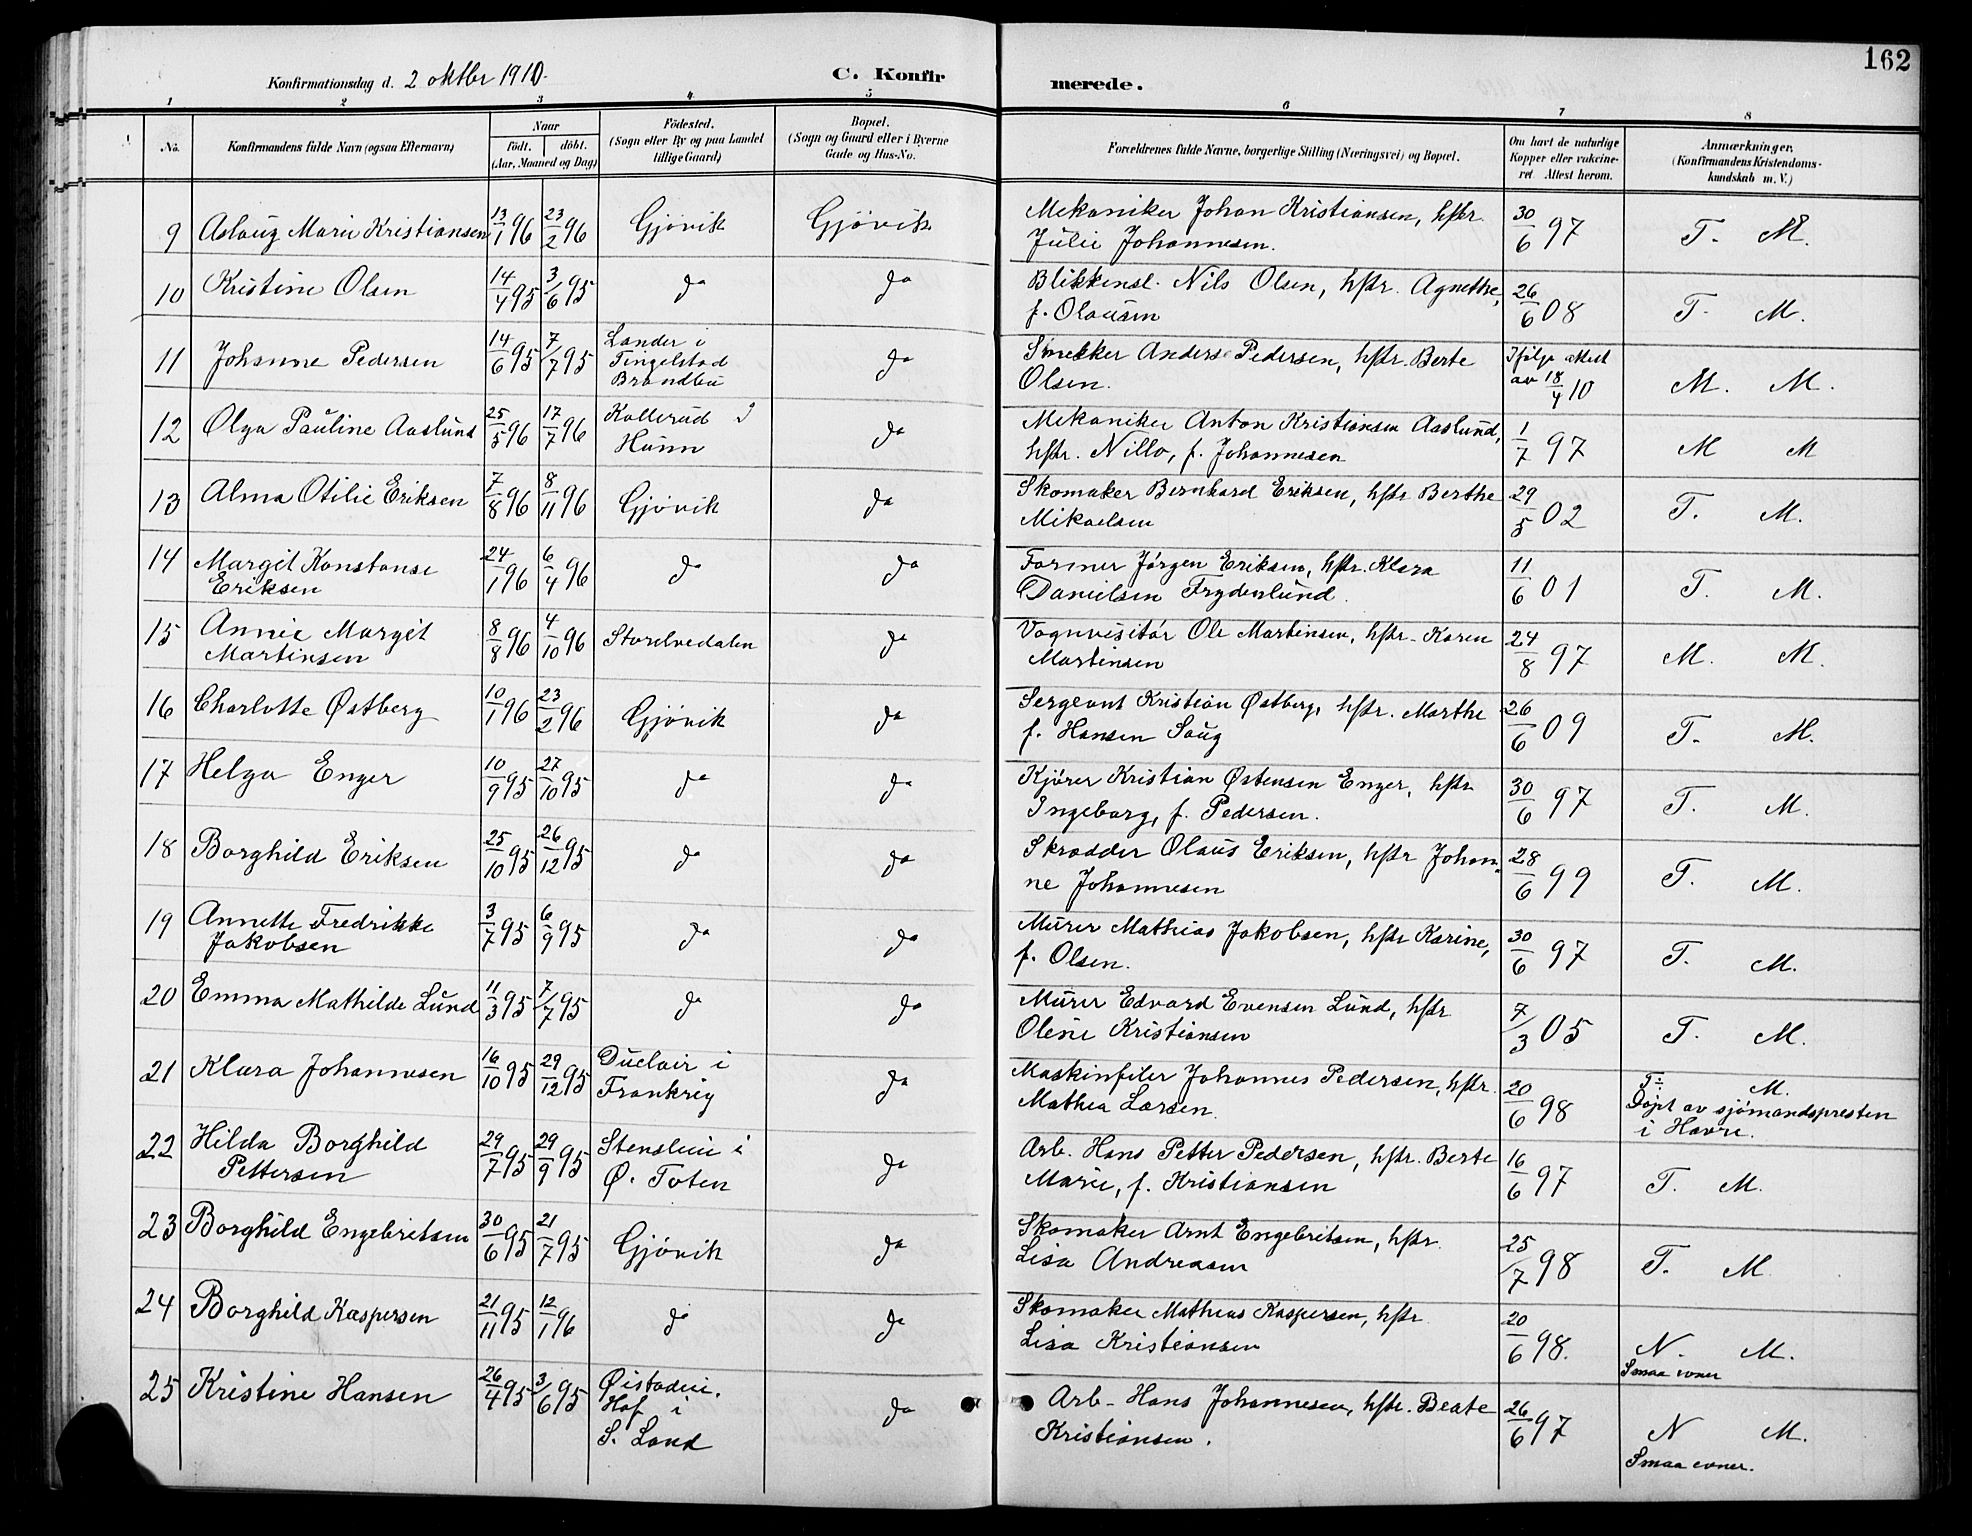 162
Konfirmationsdag d. 2 oktbr 1910.
C. Konfirmerede.
1 2 3 4 5 6 7 8
No. Konfirmandens fulde Navn (ogsaa Efternavn) Naar födt. döbt. (Aar, Maaned og Dag) Födested. (Sogn eller By og paa Landet tillige Gaard) Bopæl. (Sogn og Gaard eller i Byerne Gade og Hus-No. Forældrenes fulde Navne, borgerlige Stilling (Næringsvei) og Bopæl. Om havt de naturlige Kopper eller vakcineret Attest herom. Anmærkninger. (Konfirmandens Kristendomskundskab m. V.)
9 Aslaug Marie Kristiansen 13/1 96 23/2 96 Gjövik Gjövik Mekaniker Johan Kristiansen, hstr. 30/6 97 T. M.
Julie Johannesen.
10 Kristine Olsen 14/4 95 3/6 95 do do Blikkensl. Nils Olsen, hstr. Agnethe, 26/6 08 T. M.
f. Olausen
11 Johanne Pedersen 14/6 95 7/7 95 Lander i Tingelstad Brandbu do Snekker Anders Pedersen, hstr. Berte Ifölge attest av 18/4 10 M. M.
Olsen.
12 Olga Pauline Aaslund 25/5 96 17/7 96 Kallerud Hunn do Mekaniker Anton Kristiansen Aaslund, 1/7 97 M M
hstr. Nilla, f. Johannesen
13 Alma Otilie Eriksen 7/8 96 8/11 96 Gjövik do Skomaker Bernhard Eriksen, hstr Berthe 29/5 02 T. M.
Mikaelsen
14 Margit Konstanse Eriksen 24/1 96 6/4 96 do do Former Jörgen Eriksen, hstr. Klara 11/6 01 T. M.
Danielsen Frydenlund.
15 Annie Margit Martinsen 8/8 96 4/10 96 Storelvedalen do Vognvisitör Ole Martinsen, hstr. Karen 24/8 97 M. M.
Martinsen
16 Charlotte Østberg 10/1 96 23/2 96 Gjövik do Sergeant Kristian Østberg, hstr. Marthe 26/6 09 T. M.
f. Hansen Saug
17 Helga Enger 10/9 95 27/10 95 do do Kjörer Kristian Østensen Enger, hstr 30/6 97 T. M.
Ingeborg, f. Pedersen.
18 Borghild Eriksen 25/10 95 26/12 95 do do Skrædder Olaus Eriksen, hstr Johan- 28/6 99 T. M.
ne Johannesen
19 Annette Fredrikke Jakobsen 3/7 95 6/9 95 do do Murer Mathias Jakobsen, hstr Karine, 30/6 97 T. M.
f. Olsen.
20 Emma Mathilde Lund 11/3 95 7/7 95 do do Murer Edvard Evensen Lund, hstr 7/3 05 T. M.
Oline Kristiansen
21 Klara Johannesen 16/10 95 29/12 95 Duclair i Frankrig do Maskinfiler Johannes Pedersen, hstr. 20/6 98 T÷ M.
Mathea Larsen. Döpt av sjömandspresten i Havre.
22 Hilda Borghild Pettersen 29/7 95 29/9 95 Ø. Toten do Arb. Hans Petter Pedersen, hstr. Berte 16/6 97 T. M.
Marie, f. Kristiansen
23 Borghild Engebritsen 30/6 95 21/7 95 Gjövik do Skomaker Arnt Engebritsen, hstr. 25/7 98 T. M.
Lisa Andreasen
24 Borghild Kaspersen 21/11 95 12/1 96 do do Skomaker Mathias Kaspersen, hstr 20/6 98. N. M.
Lisa Kristiansen Smaa evner
25 Kristine Hansen 26/4 95 3/6 95 Hof i S. Land do Arb. Hans Johannesen, hstr. Beate 26/6 97 N M.
Kristiansen. Smaa evner.